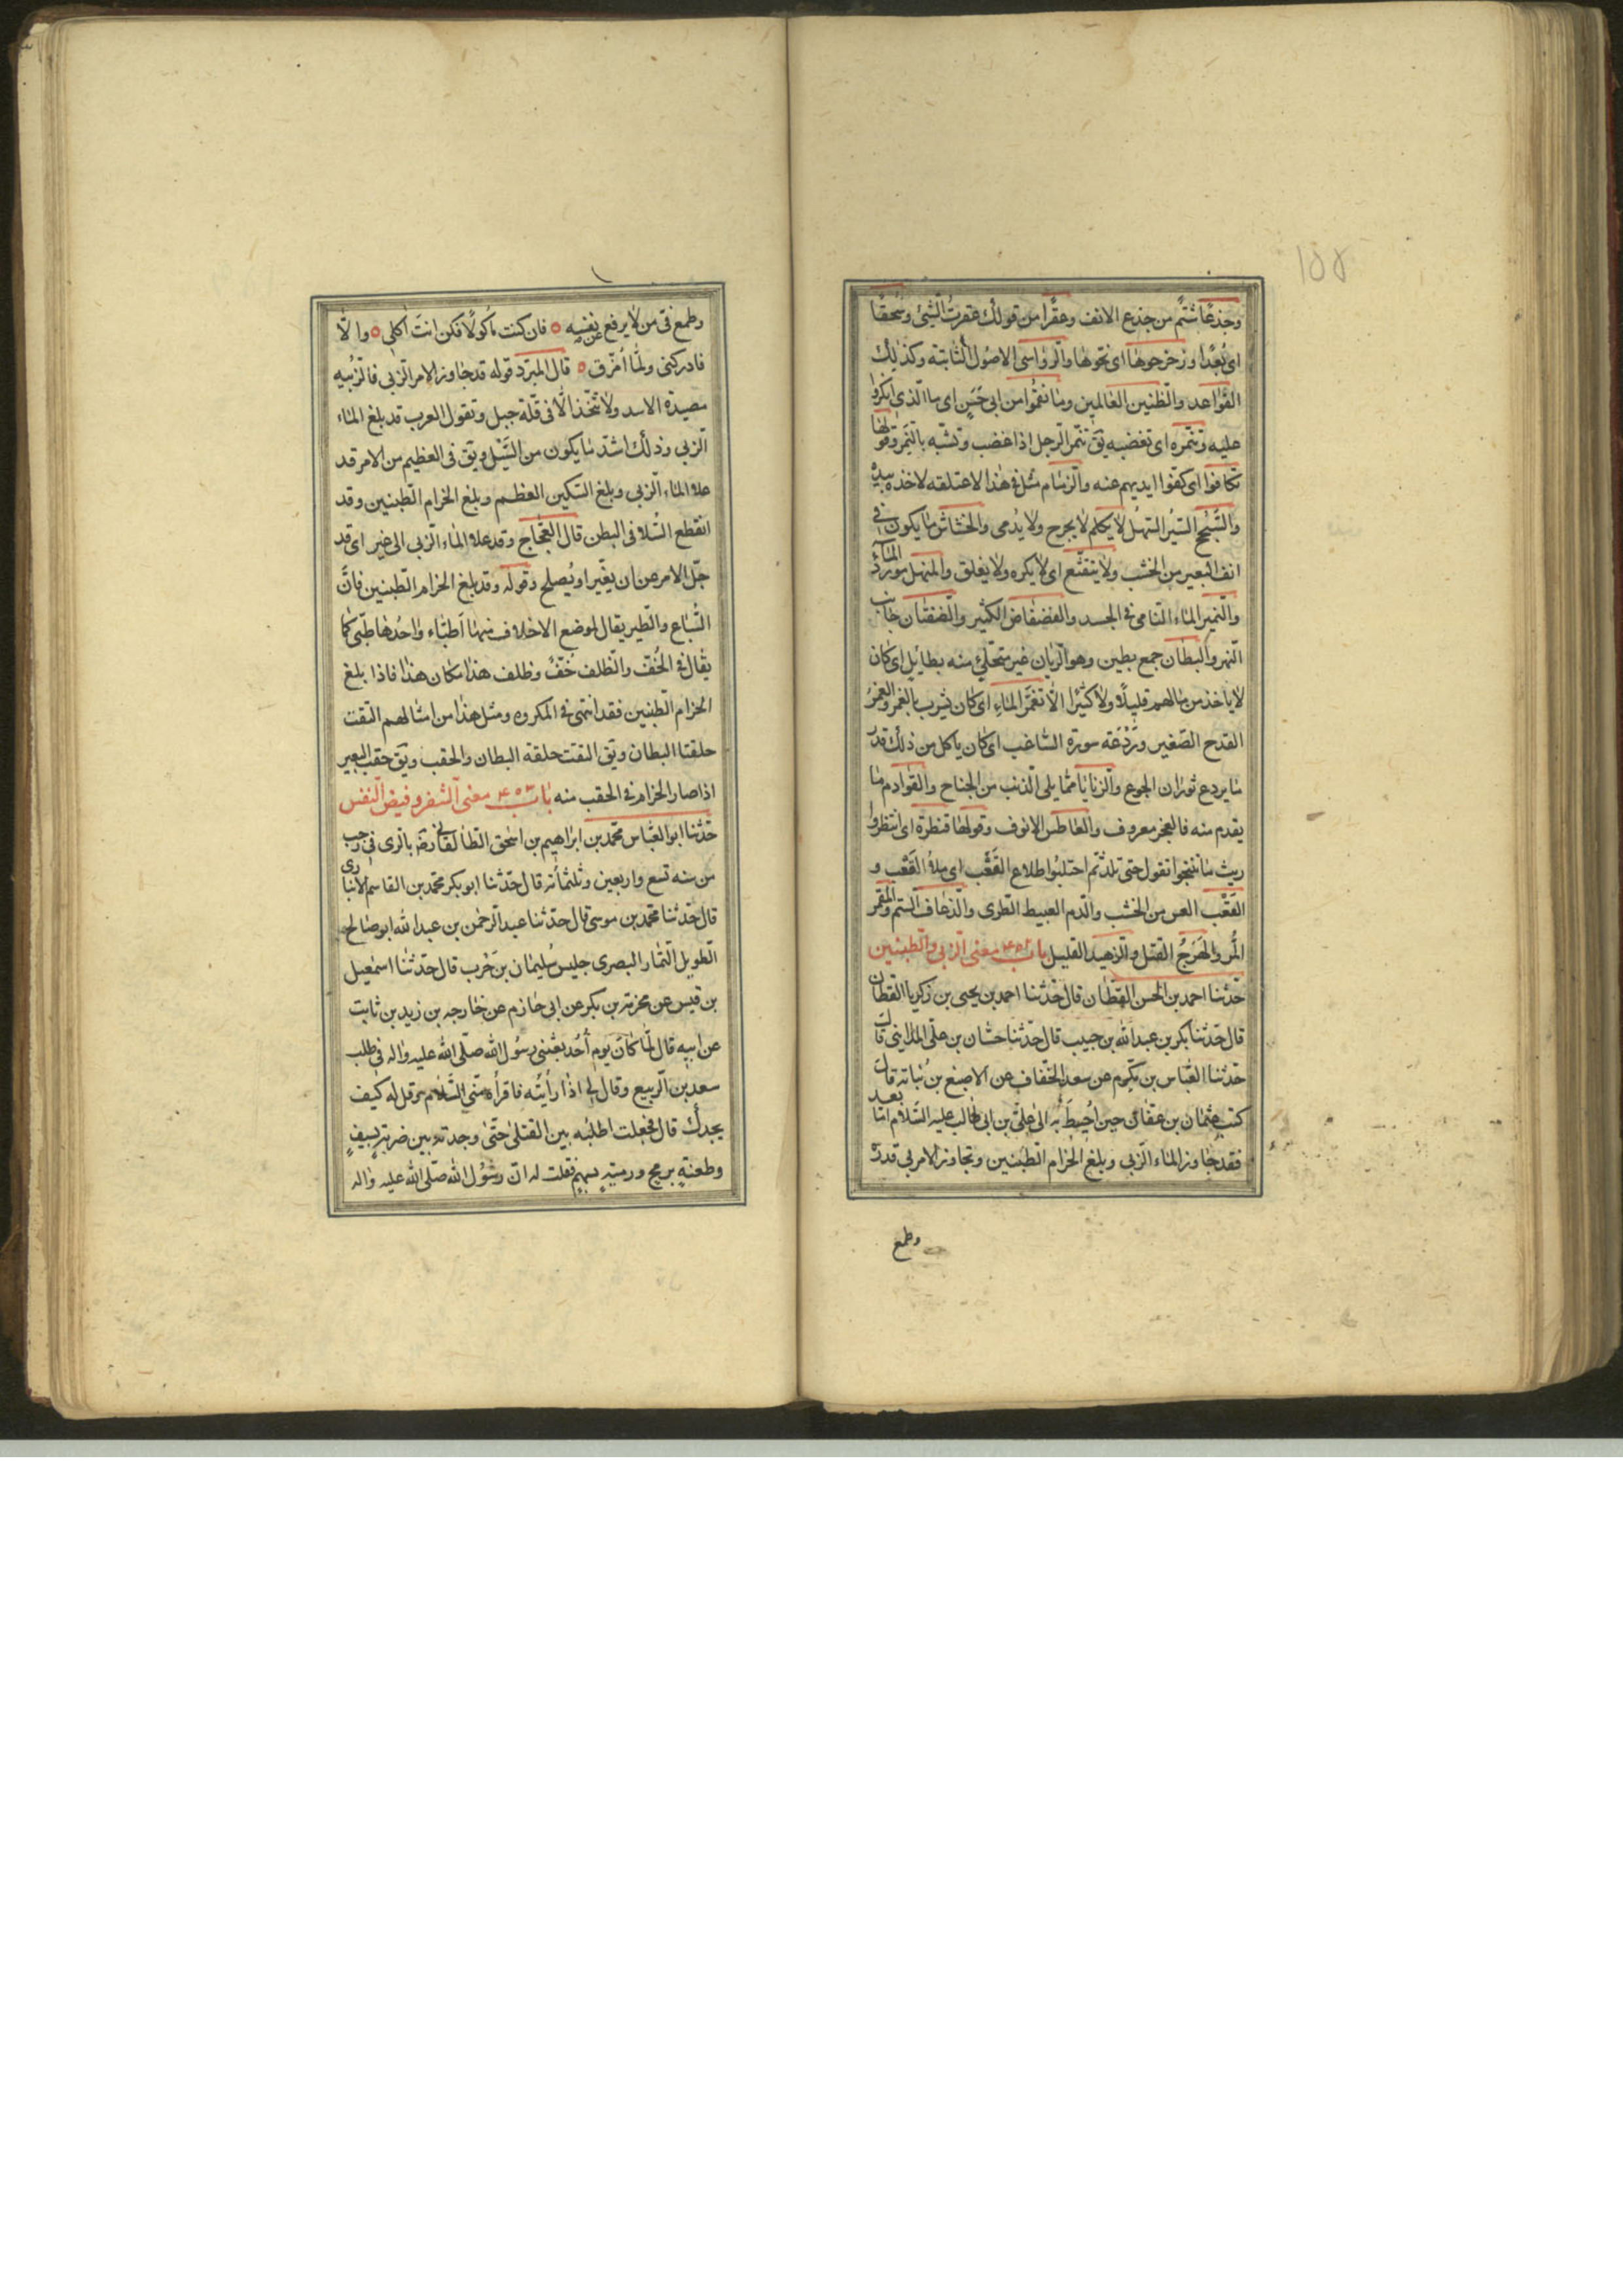 ١٥٥
وجذعًا شتم من جذع الانف وعقرًا من قولك عقرت الشئ وسُحقًا
اى بُعدًا وزحزحوها اى نحّوها والرواسى الاصُول الثابتة وكذلك
القواعد والظنين العالمين وما نقموا من ابى حَسَن اى ما الذى انكروا
عليه وتنمره اى تغضبه يق تنمّر الرجل اذا غضب وتشبّه بالنمر وقولها
تكافوا اى كفّوا ايديهم عنه والزمام مثل فى هذا لاعتلقه لاخذه بيده
والسُّجُح السّير السّهل لا يكلم لا يجرح ولا يُدمى والخشاش ما يكون فى
انف البعير من الخشب ولا يتقنّع اى لا يكره ولا يغلق والمنهل مورد الماء
والنمير الماء النامى فى الجسد والفضفاض الكثير والضفتان جانب
النهر والبطان جمع بطين وهو الريان غير متحلّى منه بطايل اى كان
لا ياخذ من مالهم قليلًا ولا كثيرًا الّا تغمّر الماء اى كان يشرب بالغمر والغمرُ
القدح الصّغير وردعه سورة الساغب اى كان ياكل من ذلك قدر
ما يردع ثوران الجوع والزنابا مما يلى الذنب من الجناح والقوادم ما
يقدم منه فالعجز معروف والمعاطس الانوف وقولها فنظرة اى انتظروا
ريث ما تنتجوا تقول حتى تلد ثم احتلبُوا طلاع القَعْب اى ملأ القَعْب و
القَعْب العس من الخشب والدم العبيط الطرى والذعاف السّم والمقر
المُر والهَرَجُ القتل والزهيد القليل باب ٤٥٢ معنى الزبى والطبيين
حدّثنا احمد بن الحسن القطان قال حدّثنا احمد بن يحيى بن زكريا القطان
قال حدّثنا بكر بن عبد الله بن حبيب قال حدّثنا حسّان بن على المداينى قال
حدّثنا العبّاس بن مكرم عن سعد الخفاف عن الاصبغ بن نُباته قال
كتب عثمان بن عفان حين اُحِيطَ به الى علىّ بن ابى طالب عليه السّلام امّا بعد
فقد جاوز الماء الزبى وبلغ الحزام الطبيين وتجاوز الامر بى قدره
وطمع
وطمع فىّ من لا يرفع عن نفسه فان كنت ماكولًا فكن انت اكلى والّا
فادركنى ولمّا اُمزّق قال المبرّد قوله قد جاوز الامر الزبى فالزُبيه
مصيدة الاسد ولا تتّخذ الّا فى قلّة جبل وتقول العرب قد بلغ الماء
الزبى وذلك اشدّ ما يكون من السَّيْل ويق فى العظيم من الامر قد
علا الماء الزبى وبلغ السّكين العظم وبلغ الحزام الطبيين وقد
انقطع السّلا فى البطن قال العجّاج وقد علا الماء الزبى الى غير اى قد
جلّ الامر عن ان يغيّر او يُصلح وقوله وقد بلغ الحزام الطبيين فانّ
السّباع والطير يقال لموضع الاخلاف منها اَطبّاء واحُدها طبّى كما
يقال فى الخُفّ والظلف خُفّ وظلف هذا مكان هذا فاذا بلغ
الحزام الطبيين فقد انتهى فى المكروه ومثل هذا من امثالهم التقت
حلقتا البطان ويق التقت حلقة البطان والحقب ويق حقب البعير
اذا صار الحزام فى الحقب منه باب ٤٥٣ معنى الشفر وفيض النفس
حدّثنا ابو العبّاس محمّد بن ابراهيم بن اسحق الطالقانى رض بالرى فى رجب
من سنه تسع واربعين وثلثمائه قال حدّثنا ابو بكر محمّد بن القاسم الانبارى
قال حدّثنا محمّد بن موسى قال حدّثنا عبد الرحمن بن عبد الله ابو صالح
الطويل التمار البصرى جليس سُليمان بن حَرب قال حدّثنا اسمعيل
بن قيس عن مخرمة بن بكر عن ابى حازم عن خارجه بن زيد بن ثابت
عن ابيه قال لمّا كان يوم اُحُد بعثنى رسُول الله صلّى الله عليه واله فى طلب
سعد بن الربيع وقال لى اذا رايتُه فاقرأه منّى السّلام ثم قل له كيف
يجدك قال فجعلت اطلبُه بين القتلى حتّى وجدته بين ضربة بسيفٍ
وطعنةٍ برمح ورميةٍ بسهمٍ فقلت له انّ رسُول الله صلّى الله عليه واله